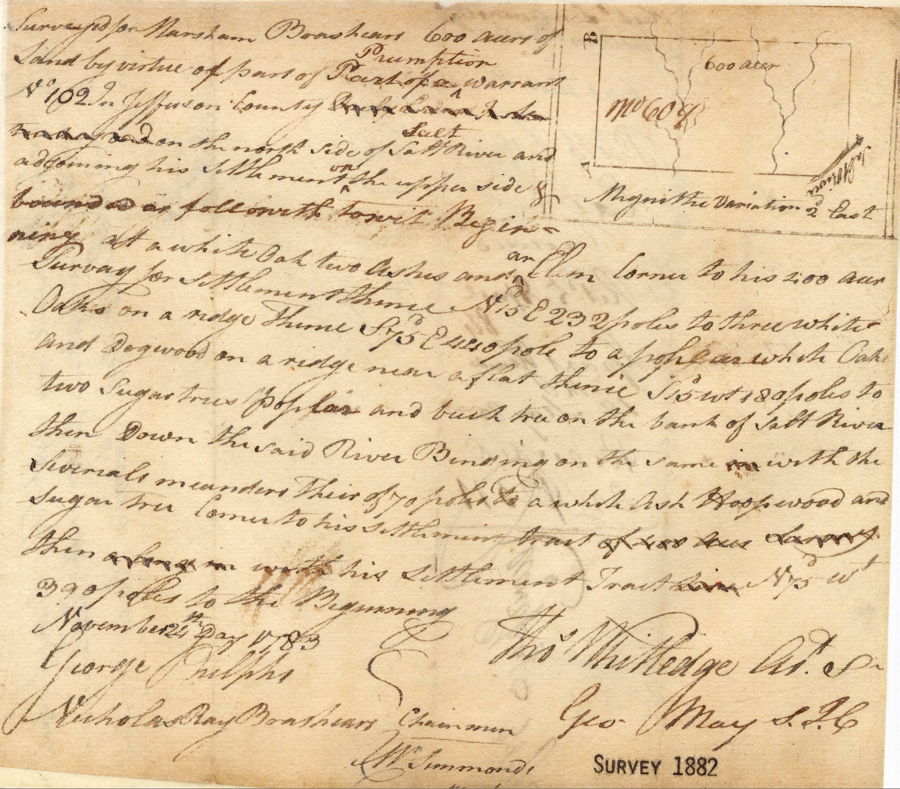 Surveyed for Marsham Brashears 600 acers of
Land by virtue of part of Preumption warrant
No 102 In Jefferson County
on the north side of Salt River and
adjoining his Settlement on the upper side &
bounded as followith towit Begin=
ning At a white Oak two Ashes and an Elm Corner to his 400 acer
Survay for Settlement thence N 15d E 232 poles to three white
Oaks on a ridge Thence S 75d E 440 pole to a poplar white Oak
and Dogwood on a ridge near a flat thence S 15d Wt 180 poles to
two Sugar trees poplar and buck tree on the bank of Salt River
then Down the said River Binding on the same with the
Severals meanders their of 70 poles to a white Ash Hoopwood and
Sugar tree Corner to his Settlement tract
then with his Settlement Tract N 75d Wt
390 poles to the Beginning
November 24th Day 1783
George Phelphs
Nicholas Ray Brashears Chainmen
Wm Simmonds
Thos Whitledge Ast. S.
Geo May S.J.C
B
600 acer
No 608
A
Salt River
Magnittic Variation 2d East
SURVEY 1882